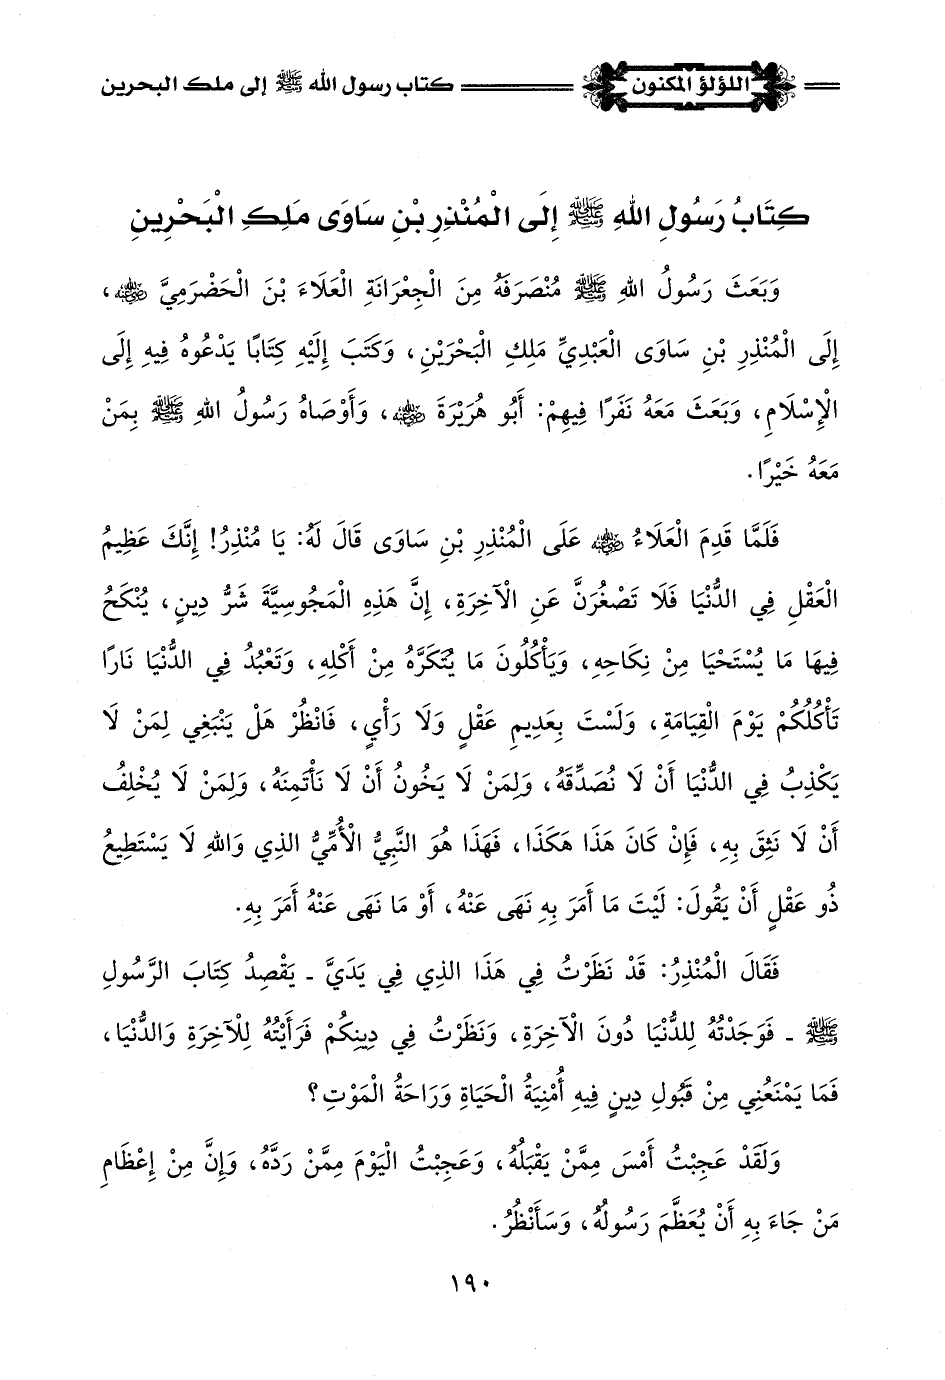 اللؤلؤ المكنون
كتاب رسول الله ﷺ إلى ملك البحرين
كِتَابُ رَسُولِ اللهِ ﷺ إِلَى الْمُنْذِرِ بْنِ سَاوَى مَلِكِ الْبَحْرِينِ
وَبَعَثَ رَسُولُ اللهِ ﷺ مُنْصَرَفَهُ مِنَ الْجِعْرَانَةِ الْعَلَاءَ بْنَ الْحَضْرَمِيَّ رضي الله عنه،
إِلَى الْمُنْذِرِ بْنِ سَاوَى الْعَبْدِيِّ مَلِكِ الْبَحْرَيْنِ، وَكَتَبَ إِلَيْهِ كِتَابًا يَدْعُوهُ فِيهِ إِلَى
الْإِسْلَامِ، وَبَعَثَ مَعَهُ نَفَرًا فِيهِمْ: أَبُو هُرَيْرَةَ رضي الله عنه، وَأَوْصَاهُ رَسُولُ اللهِ ﷺ بِمَنْ
مَعَهُ خَيْرًا.
فَلَمَّا قَدِمَ الْعَلَاءُ رضي الله عنه عَلَى الْمُنْذِرِ بْنِ سَاوَى قَالَ لَهُ: يَا مُنْذِرُ! إِنَّكَ عَظِيمُ
الْعَقْلِ فِي الدُّنْيَا فَلَا تَصْغُرَنَّ عَنِ الْآخِرَةِ، إِنَّ هَذِهِ الْمَجُوسِيَّةَ شَرُّ دِينٍ، يُنْكَحُ
فِيهَا مَا يُسْتَحْيَا مِنْ نِكَاحِهِ، وَيَأْكُلُونَ مَا يُتَكَرَّهُ مِنْ أَكْلِهِ، وَتَعْبُدُ فِي الدُّنْيَا نَارًا
تَأْكُلُكُمْ يَوْمَ الْقِيَامَةِ، وَلَسْتَ بِعَدِيمِ عَقْلٍ وَلَا رَأْيٍ، فَانْظُرْ هَلْ يَنْبَغِي لِمَنْ لَا
يَكْذِبُ فِي الدُّنْيَا أَنْ لَا نُصَدِّقَهُ، وَلِمَنْ لَا يَخُونُ أَنْ لَا نَأْتَمِنَهُ، وَلِمَنْ لَا يُخْلِفُ
أَنْ لَا نَثِقَ بِهِ، فَإِنْ كَانَ هَذَا هَكَذَا، فَهَذَا هُوَ النَّبِيُّ الْأُمِّيُّ الذِي وَاللهِ لَا يَسْتَطِيعُ
ذُو عَقْلٍ أَنْ يَقُولَ: لَيْتَ مَا أَمَرَ بِهِ نَهَى عَنْهُ، أَوْ مَا نَهَى عَنْهُ أَمَرَ بِهِ.
فَقَالَ الْمُنْذِرُ: قَدْ نَظَرْتُ فِي هَذَا الذِي فِي يَدَيَّ ـ يَقْصِدُ كِتَابَ الرَّسُولِ
ﷺ ـ فَوَجَدْتُهُ لِلدُّنْيَا دُونَ الْآخِرَةِ، وَنَظَرْتُ فِي دِينِكُمْ فَرَأَيْتُهُ لِلْآخِرَةِ وَالدُّنْيَا،
فَمَا يَمْنَعُنِي مِنْ قَبُولِ دِينٍ فِيهِ أُمْنِيَةُ الْحَيَاةِ وَرَاحَةُ الْمَوْتِ؟
وَلَقَدْ عَجِبْتُ أَمْسَ مِمَّنْ يَقْبَلُهُ، وَعَجِبْتُ الْيَوْمَ مِمَّنْ رَدَّهُ، وَإِنَّ مِنْ إِعْظَامِ
مَنْ جَاءَ بِهِ أَنْ يُعَظَّمَ رَسُولُهُ، وَسَأَنْظُرُ.
١٩٠